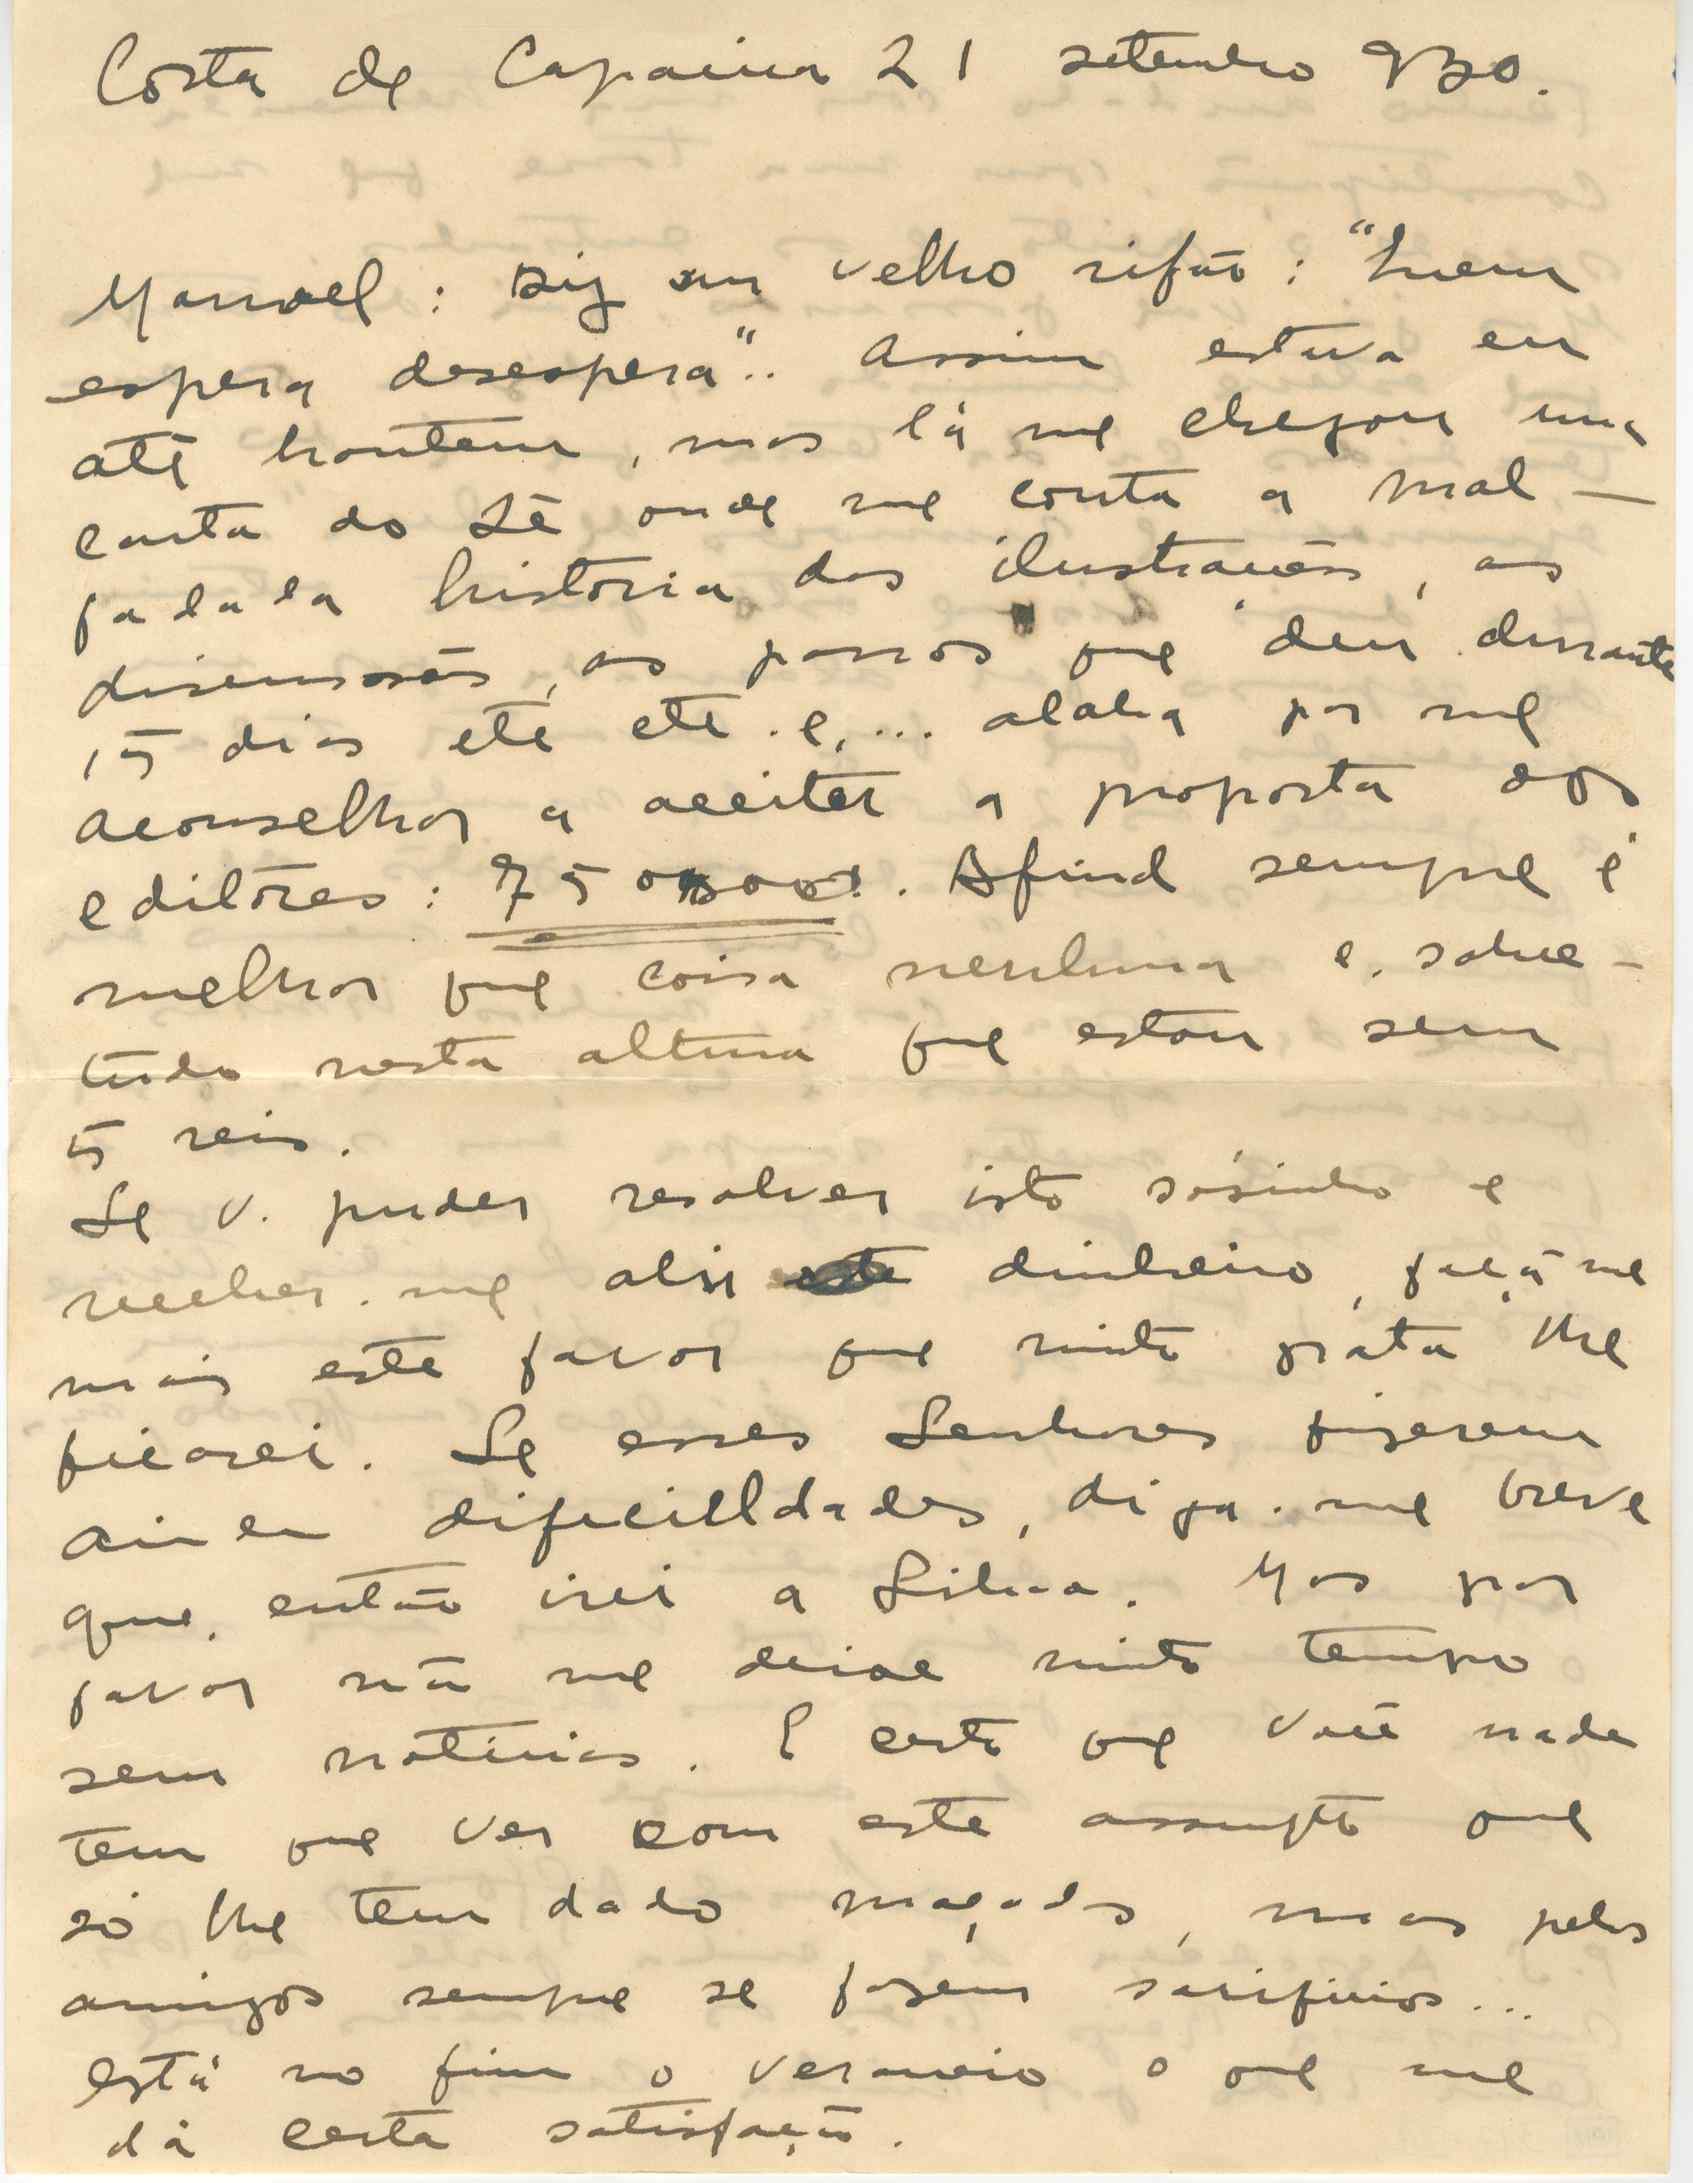 Costa de Caparica 21 setembro 930.
Manoel : Diz um velho rifão : "Quem
espera desespera".. Assim estava eu
até hontem, mas lá me chegou uma
carta do Zé onde me conta a mal-
fadada historia das ilustrações, as
discussões, os passos que deu durante
15 dias etc etc. e,... acaba por me
aconselhar a aceitar a proposta dos
editôres : 750$000!. Afinal sempre é
melhor que coisa nenhuma e, sobre-
tudo nesta altura que estou sem
5 reis.
Se V. puder resolver isto sósinho e
receber-me ahi dinheiro, faça-me
mais este favor que muito grata lhe
ficarei. Se esses Senhores fizerem
ainda dificilldades, diga-me breve
que, então irei a Lisboa. Mas por
favor não me deixe muito tempo
sem noticias. É certo que Você nada
tem que ver com este assumpto que
só lhe tem dado maçadas, mas pelos
amigos sempre se fazem sacrificios...
Está no fim o veraneio o que me
dá certa satisfação.